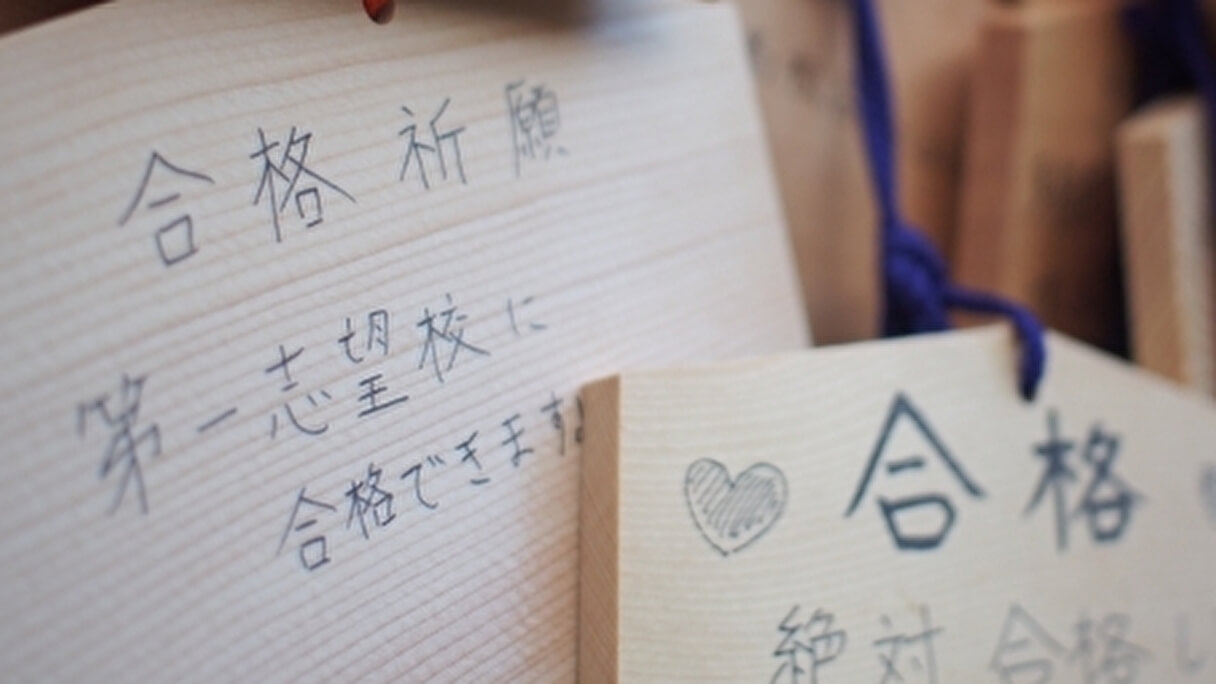 合格祈願
第一志望校に
合格できます
合格
絶対合格し